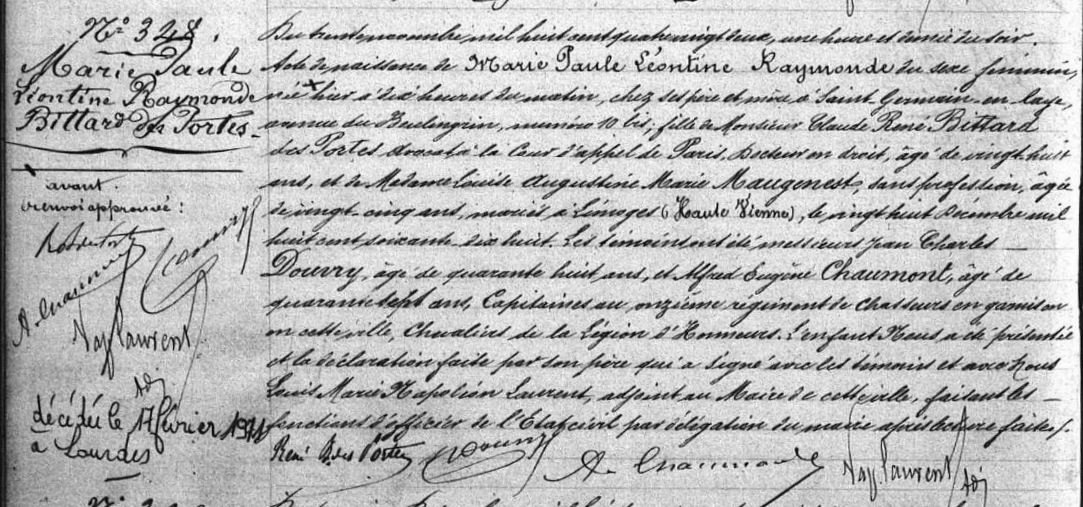 N° 348.
Marie Paule
Léontine Raymonde
Bittard des Portes
avant.
renvoi approuvé :
R B des Portes
Douvry
A. Chaumont
Nap Laurent
adj
décédée le 17 février
à Lourdes
Du trente novembre mil huit cent quatre vingt deux, une heure et demie du soir.
Acte de naissance de Marie Paule Léontine Raymonde du sexe féminin,
née hier à dix heures du matin, chez ses père et mère à Saint Germain-en-laye,
avenue du Boulingrin, numéro 10 bis; fille de Monsieur Claude René Bittard
des Portes avocat à la Cour d'appel de Paris, Docteur en droit, âgé de vingt huit
ans, et de Madame Louise Augustine Marie Maugenest, sans profession, âgée
de vingt-cinq ans, mariés à Limoges (Haute Vienne), le vingt huit décembre mil
huit cent soixante-dix huit. Les témoins ont été messieurs Jean Charles
Douvry, âgé de quarante huit ans, et Alfred Eugène Chaumont, âgé de
quarante sept ans, Capitaines au onzième régiment de Chasseurs en garnison
en cette ville, Chevaliers de la Légion d'Honneurs. L'enfant Nous a été présentée
et la déclaration faite par son père qui a signé avec les témoins et avec Nous
Louis Marie Napoléon Laurent, adjoint au Maire de cette ville, faisant les
fonctions d'officier de l'Etat civil par délégation du maire après lecture faite /.
René B. des Portes Douvry A. Chaumont Nap. Laurent adj